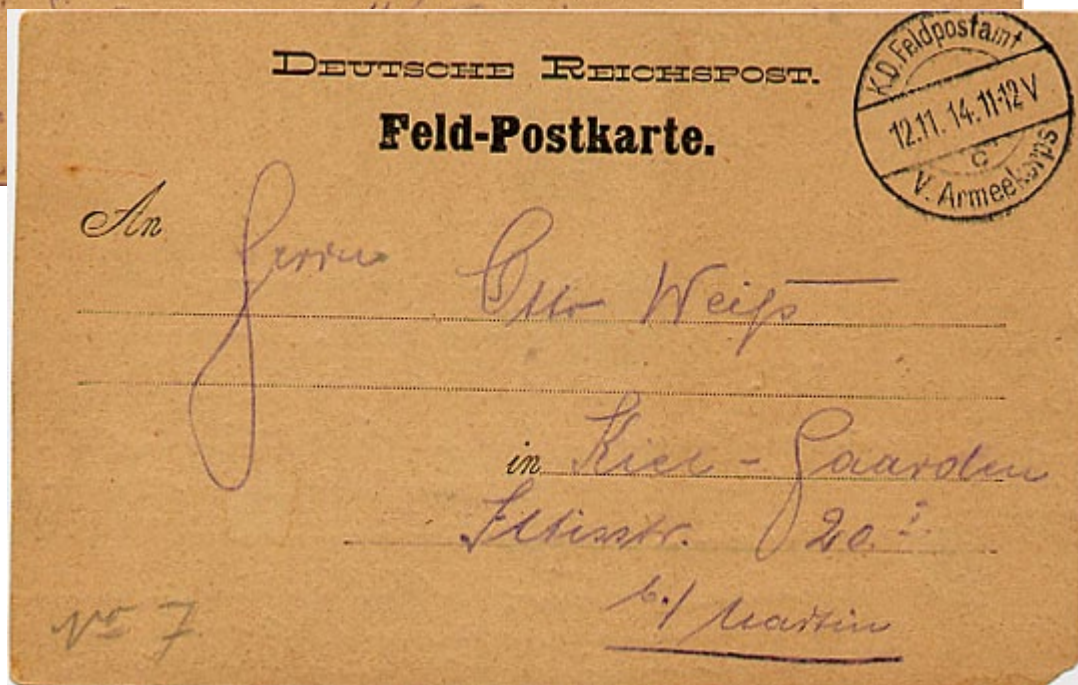 DEUTSCHE REICHSPOST.
Feld-Postkarte.
K.D.Feldpostamt
12.11.14.11-12V
c
V. Armeekorps
An Herrn Otto Weiß
in Kiel-Gaarden
Iltisstr. 20.I.
b./ Martin
No 7